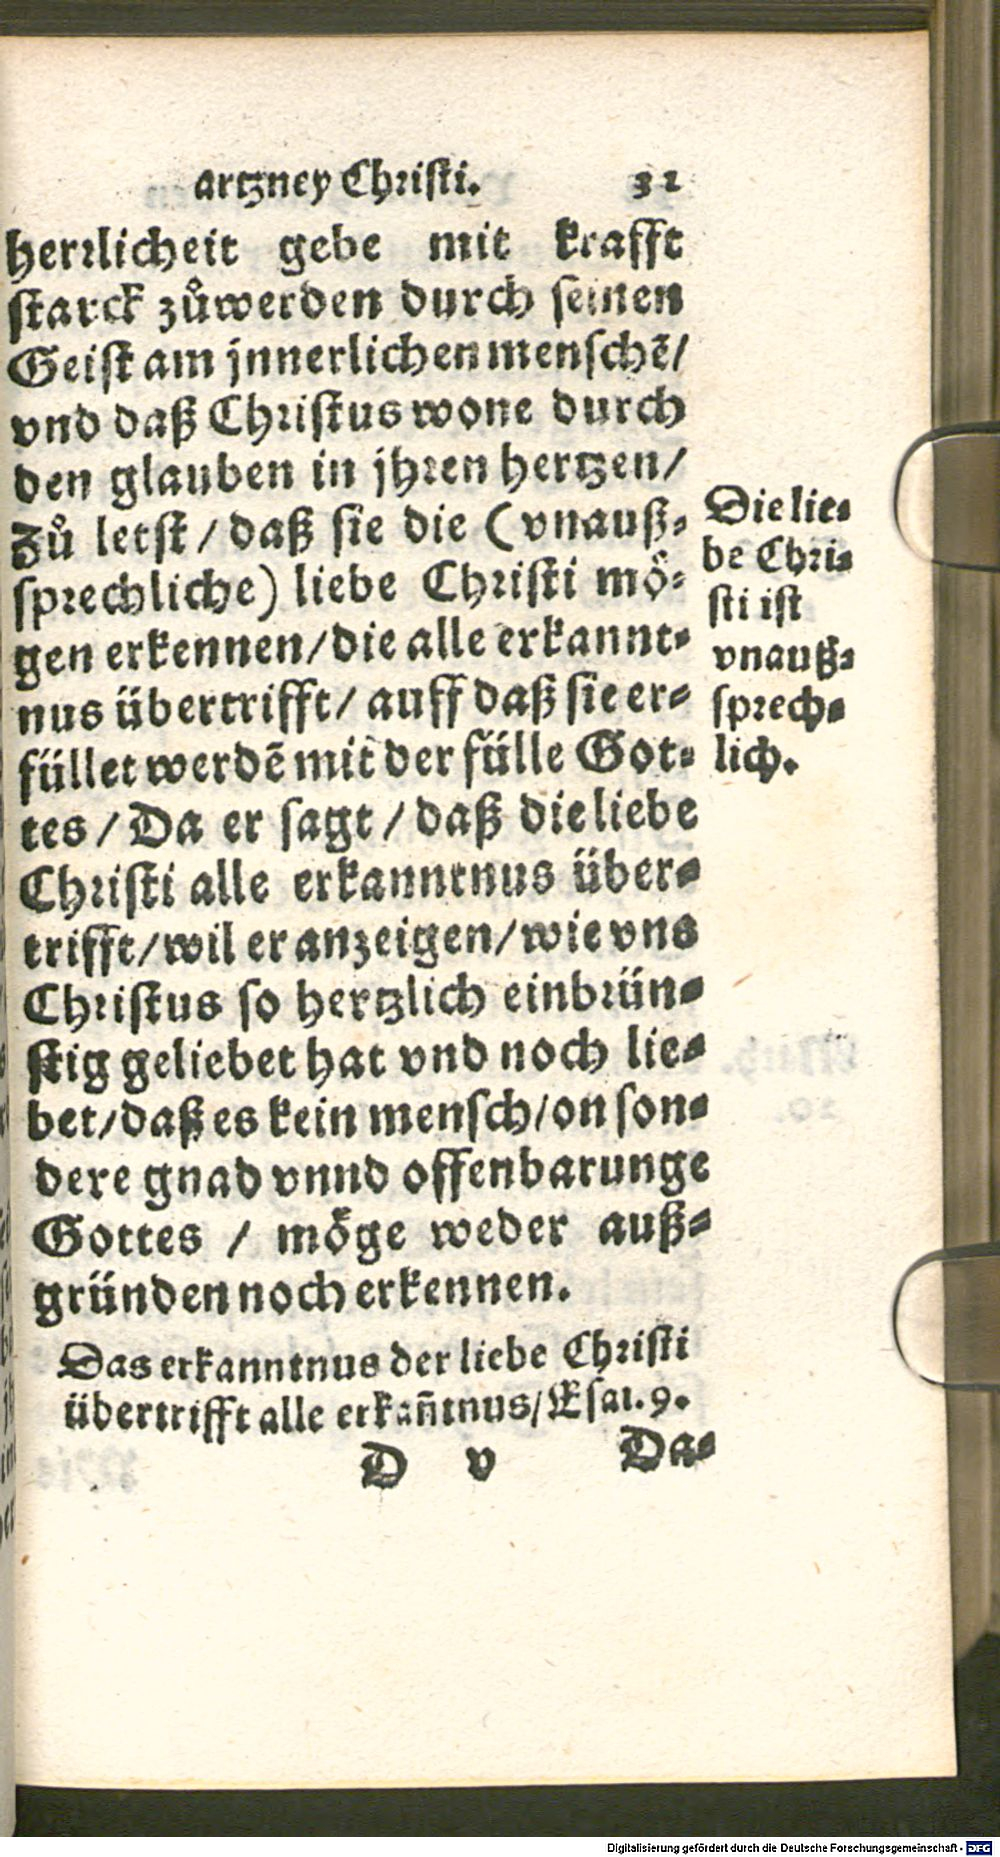 artzney Christi. 32
herrlicheit gebe mit krafft
starck zůwerden durch seinen
Geist am jnnerlichen menschẽ/
vnd daß Christus wone durch
den glauben in jhren hertzen/
Zů letst / daß sie die (vnauß-
sprechliche) liebe Christi mö-
gen erkennen/die alle erkannt-
nus übertrifft/ auff daß sie er-
füllet werdẽ mit der fülle Got-
tes / Da er sagt / daß die liebe
Christi alle erkanntnus über-
trifft/wil er anzeigen/wie vns
Christus so hertzlich einbrün-
stig geliebet hat vnd noch lie-
bet/daß es kein mensch/on son-
dere gnad vnnd offenbarunge
Gottes / möge weder auß-
gründen noch erkennen.
Das erkanntnus der liebe Christi
übertrifft alle erkañtnus/Esai. 9.
D v Da-
Die lie-
be Chri-
sti ist
vnauß-
sprech-
lich.
Digitalisierung gefördert durch die Deutsche Forschungsgemeinschaft - DFG